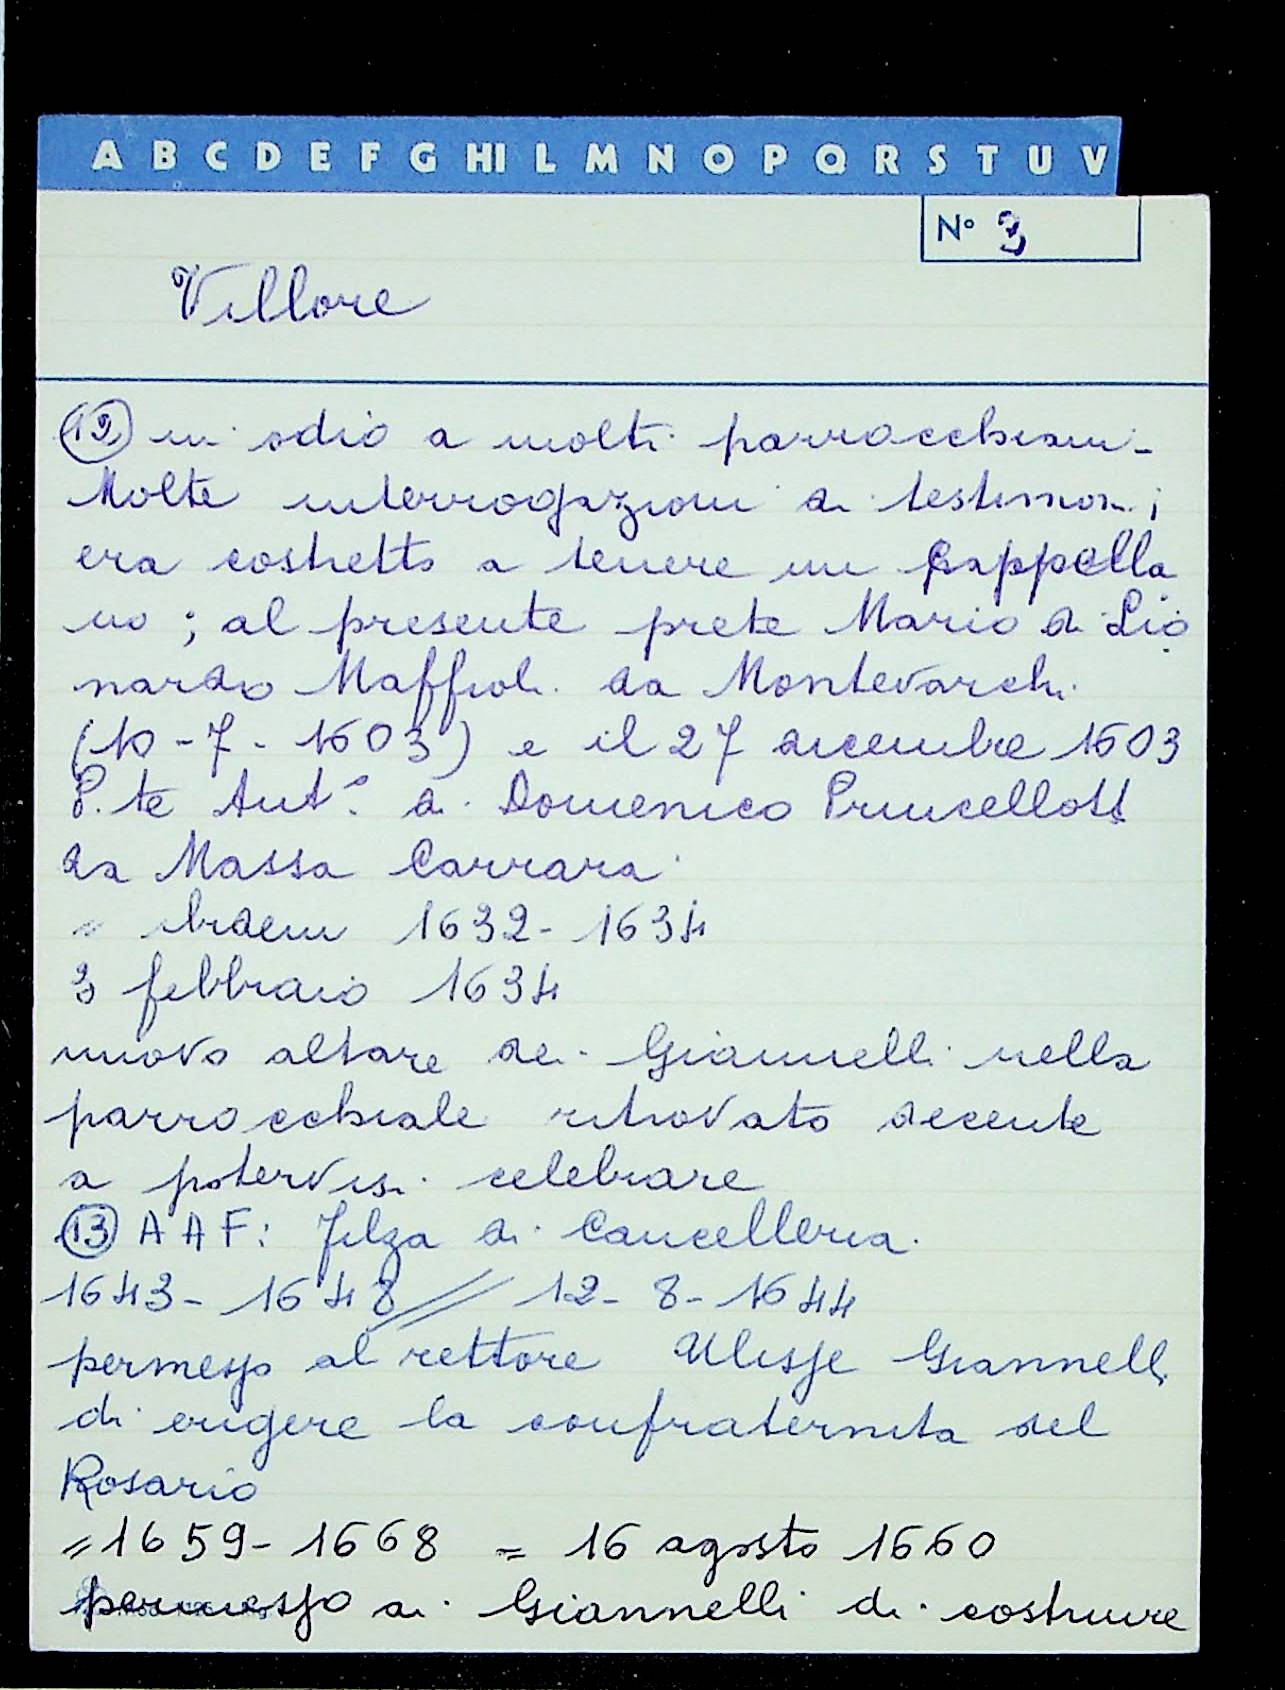 A B C D E F G HI L M N O P Q R S T U V
N° 3
Villore
12 in odio a molti parrocchiani -
Molte interrogazioni di testimoni;
era costretto a tenere un cappella
no; al presente prete Mario di Lio
nardo Maffioli da Montevarchi
(10-7-1603) e il 27 dicembre 1603
P.te Ant.° di Domenico
da Massa Carrara
= ibidem 1632-1634
3 febbraio 1634
nuovo altare dei Giannelli nella
parrocchiale ritrovato decente
a potervisi celebrare
13 AAF: Filza di Cancelleria
1643-1648 // 12-8-1644
permesso al rettore Ulisse Giannelli
di erigere la confraternita del
Rosario
= 1659-1668 = 16 agosto 1660
permesso ai Giannelli di costruire